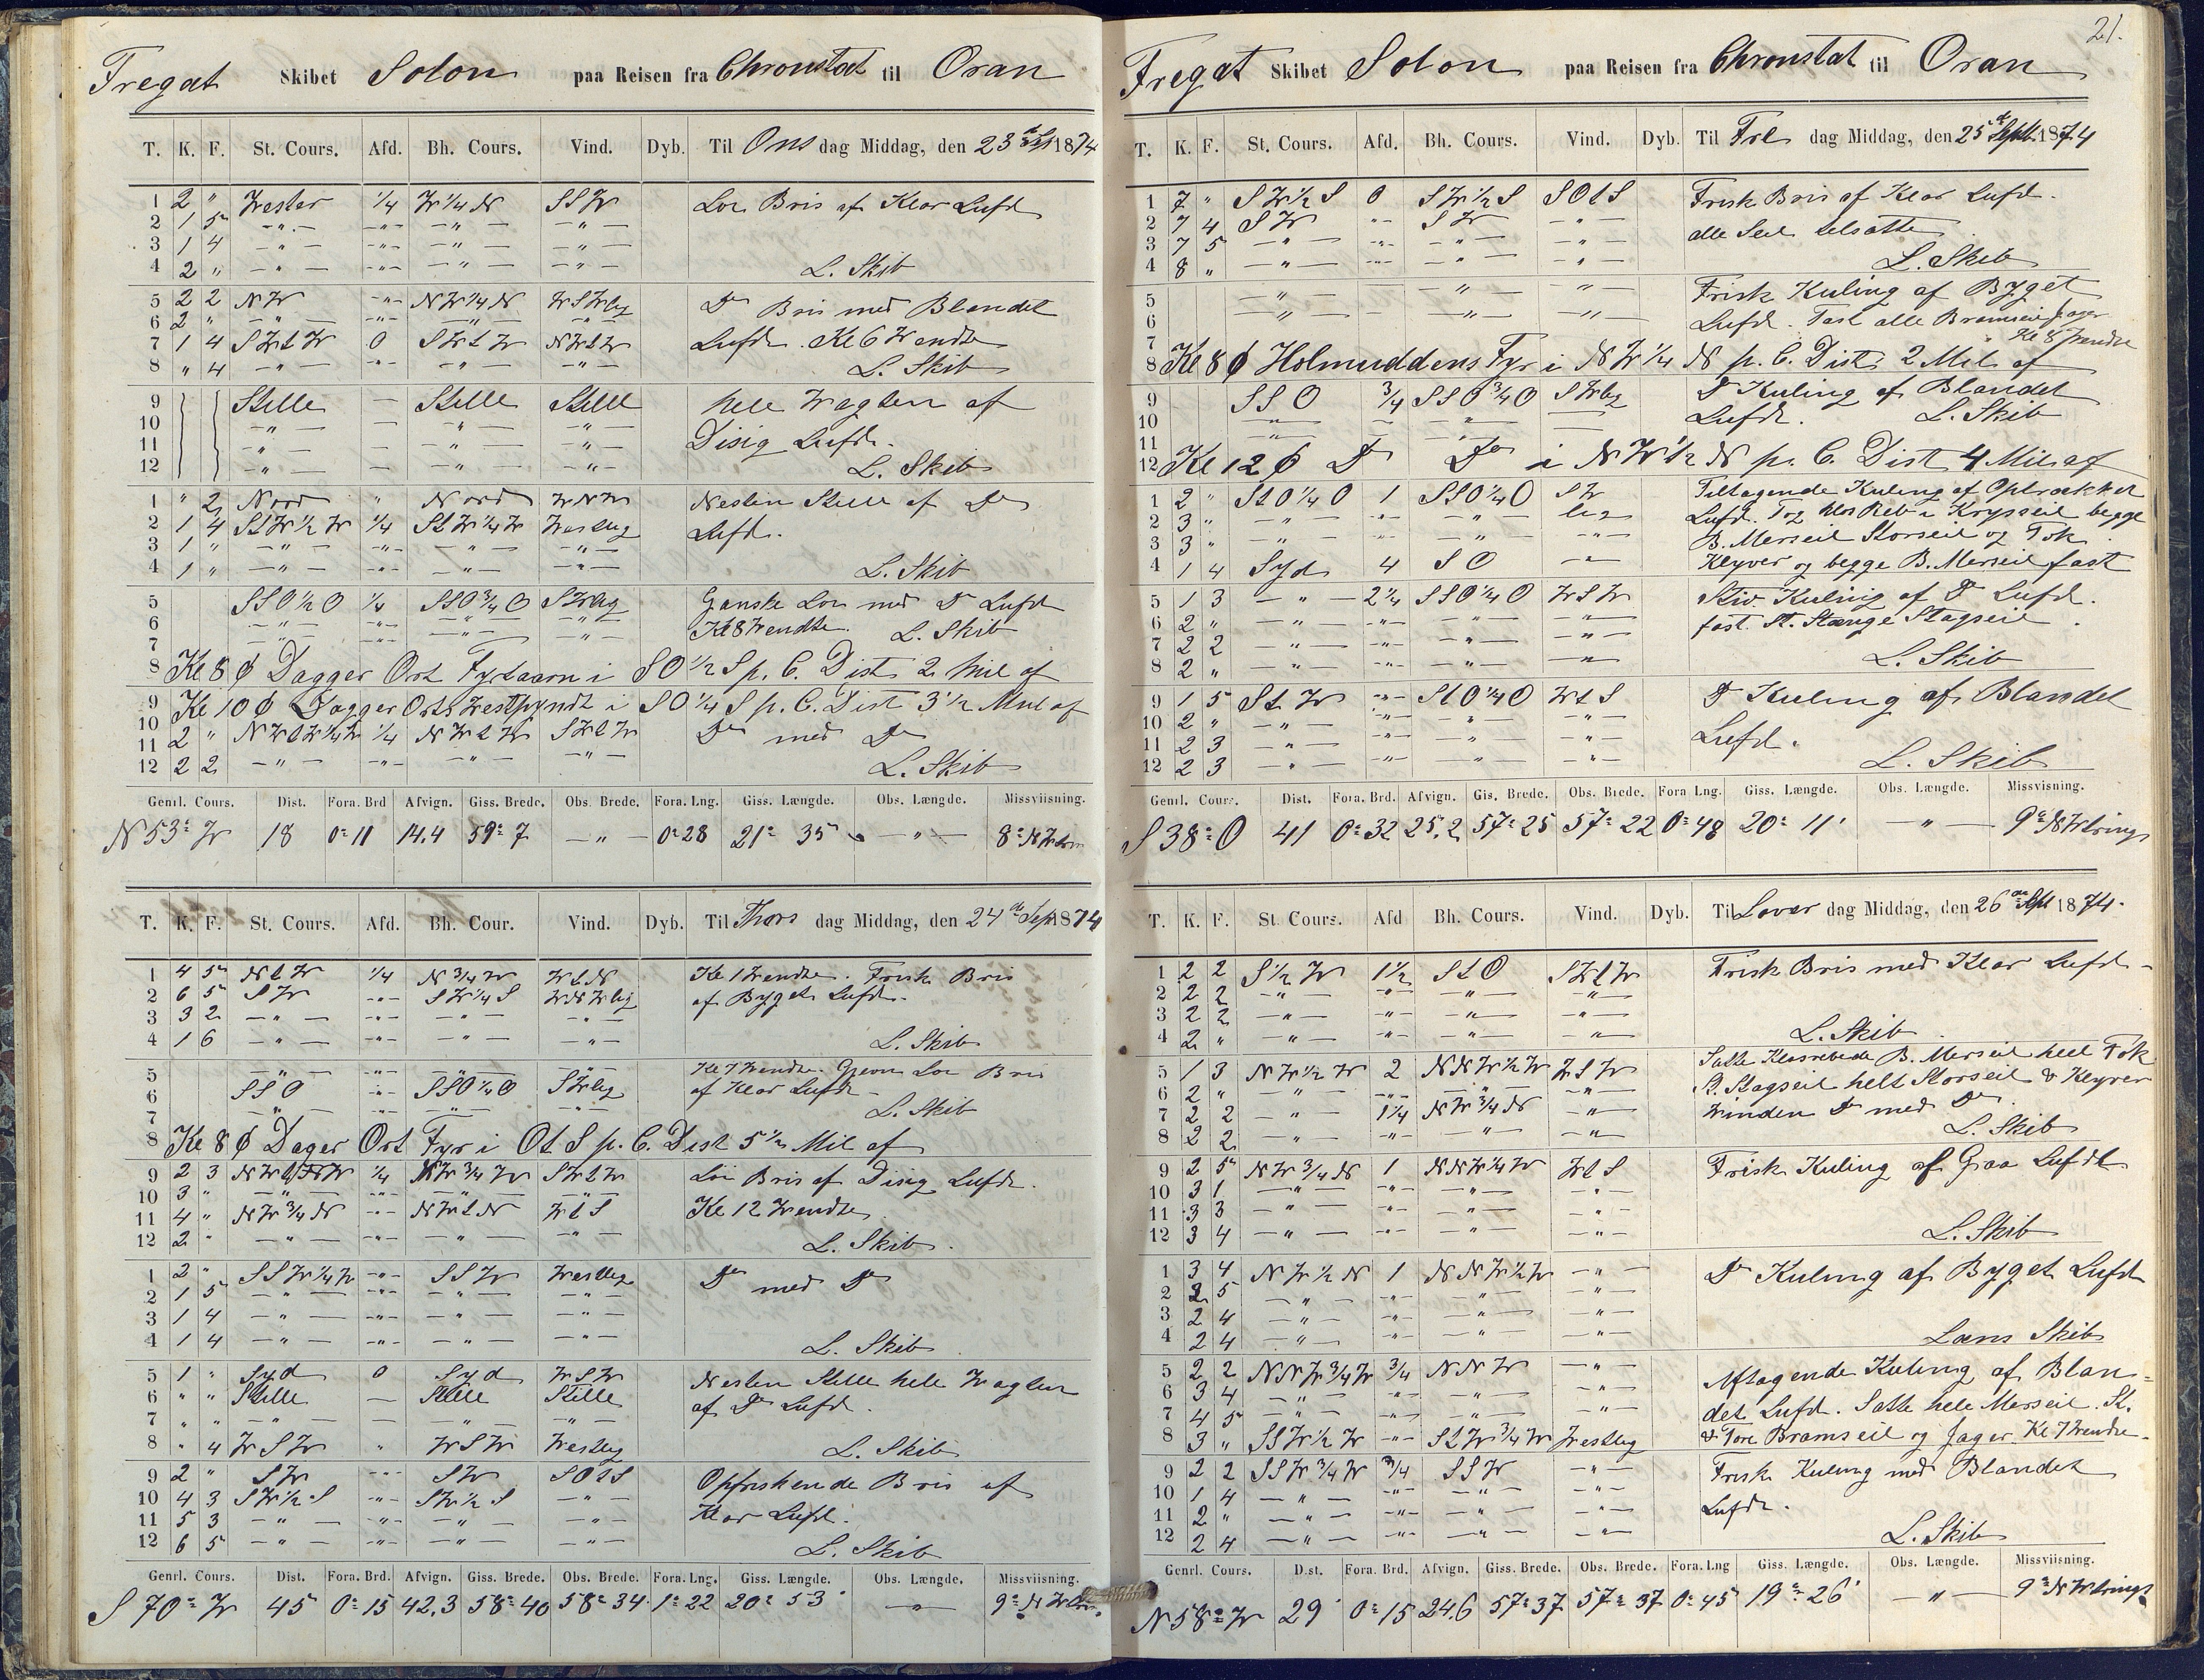 Fregat Skibet Solon paa Reisen fra Chronstat til Oran
T. K. F. St. Cours. Afd. Bh. Cours. Vind. Dyb. Til Ons dag Middag, den 23 de Sept 1874
1 2 " Wester 1/4 W 1/4 N SSW Lør Bris af Klar Lufd
2 1 5 — " — — " — — " — — " —
3 1 4 — " — — " — — " — — " —
4 2 " — " — — " — — " — — " — L. Skib
5 2 2 NW — " — NW 1/4 N WSWlig Do Bris med Blandet
6 2 " — " — — " — — " — — " —
7 1 4 SWtW 0 SWtW NWtW Lufd. Kl 6 Wendte
8 " 4 — " — — " — — " — — " — L. Skib
9 Stille — Stille Stille hele Wagten af
10 — " — — — " — — " —
11 — " — — " — — " — Disig Lufd.
12 — " — — — " — — " — L. Skib
1 " 2 Nord " Nord WNW Nesten Stille af Do
2 1 4 StW 1/2 W 1/4 StW 1/4 W Westlig Lufd.
3 1 " — " — — " — — " — — " —
4 1 " — " — — " — — " — — " — L. Skib
5 SSO 1/2 O 1/4 SSO 3/4 O SWlig Ganske Lør med Do Lufd
6 — " — — " — — " — — " — Kl 8 Wendte. L. Skib
7 — " — — " — — " — — " —
8 Kl 8 φ Dagger Ort Fyrtaarn i SO 1/2 S p. C. Dist 2 Mil af
9 Kl 10 φ Dagger Orts Westpyndt i SO 1/4 S p. C. Dist 3 1/2 Mul af
10
11 2 " NWtW 1/4 W 1/4 NWtW SWtW Do med Do
12 2 2 — " — — " — — " — — " — L. Skib
Genrl. Cours. Dist. Fora. Brd Afvign. Giss. Brede. Obs. Brede. Fora. Lng. Giss. Længde. Obs. Længde. Missviisning.
N 53° W 18 0° 11 14,4 59° 7 — " — 0° 28 21° 35 — " — 8° NW
T. K. F. St. Cours. Afd. Bh. Cour. Vind. Dyb. Til Thors dag Middag, den 24 de Sept 1874
1 4 5 NtW 1/4 N 3/4 W WtN Kl 1 Wendte. Frisk Bris
2 6 5 SW — " — SW 1/4 S WNWlig af Byget Lufd.
3 3 2 — " — — " — — " — — " —
4 1 6 — " — — " — — " — — " — L. Skib
5 — " — — " — — " — — " — Kl 7 Wendte. Gjevn Lør Bris
6 SSO — " — SSO 1/4 O SWlig af Klar Lufd
7 — " — — " — — " — — " — L. Skib
8 Kl 8 φ Dager Ort Fyr i OtS p. C. Dist 5 1/2 Mil af
9 2 3 1/4 NW 3/4 W SWtW Lør Bris af Disig Lufd.
10 3 " — " — — " — — " — — " —
11 4 " NW 3/4 N — " — NWtN WtS Kl 12 Wendte
12 2 " — " — — " — — " — — " — L. Skib.
1 2 " SSW 1/4 W — " — SSW Westlig Do med Do
2 1 5 — " — — " — — " — — " —
3 1 4 — " — — " — — " — — " —
4 1 4 — " — — " — — " — — " — L. Skib
5 1 " Syd 0 Syd WSW Nesten Stille hele Wagten
6 " " Stille — Stille Stille af Do Lufd.
7 " " — " — — — " — — " —
8 " 4 WSW " WSW Westlig L. Skib
9 2 " SW — " — SW SOtS Opfriskende Bris af
10 4 3 SW 1/2 S — " — SW 1/2 S — " —
11 5 3 — " — — " — — " — — " — Klar Lufd.
12 6 5 — " — — " — — " — — " — L. Skib
Genrl. Cours. Dist. Fora. Brd. Afvign. Giss. Brede. Obs. Brede. Fora. Lng. Giss. Længde. Obs. Længde. Missviisning.
S 70° W 45 0° 15 42,3 58° 40 58° 34 1° 22 20° 53' — " — 9° NW
21.
Fregat Skibet Solon paa Reisen fra Chronstat til Oran
T. K. F. St. Cours. Afd. Bh. Cours. Vind. Dyb. Til Fre dag Middag, den 25 de Sept. 1874
1 7 " SW 1/2 S 0 SW 1/2 S SOtS Frisk Bris af Klar Lufd.
2 7 4 SW — " — SW — " — alle Seil tilsatte
3 7 5 — " — — " — — " — — " —
4 8 " — " — — " — — " — — " — L. Skib
5 — " — — " — — " — Frisk Kuling af Byget
6 — " — — " — — " — Lufd. Fast alle Bramseil Jager
7 Kl 8 Wendte
8 Kl 8 φ Holmuddens Fyr i NW 1/4 N p. C. Dist 2 Mil af
9 SSO 3/4 SSO 3/4 O SWlig Do Kuling af Blandet
10 — " — — — " — — Lufd. L. Skib
11 — " — — — " — —
12 Kl 12 φ Do Do i NW 1/2 N p. C. Dist 4 Mil af
1 2 " StO 1/4 O 1 SSO 1/4 O SW Tiltagende Kuling af Optrækket
2 3 " — " — — " — — " — lig Lufd. Tog Reb i Krysseil begge
3 3 " — " — — " — — " — — " — B. Merseil Storseil og Fok
4 1 4 Syd 4 SO — " — Klyver og begge B. Merseil fast
5 1 3 — " — 2 1/4 SSO 1/4 O WSW Stiv Kuling af Do Lufd.
6 2 " — " — — " — — " — — " — fast St. Stænge Stagseil.
7 2 2 — " — — " — — " — — " —
8 2 " — " — — " — — " — — " — L. Skib
9 1 5 StW — " — StO 1/4 O WtS Do Kuling af Blandet
10 2 " — " — — " — — " — — " —
11 2 3 — " — — " — — " — — " — Lufd.
12 2 3 — " — — " — — " — — " — L. Skib
Genrl. Cours. Dist. Fora. Brd. Afvign. Gis. Brede. Obs. Brede. Fora Lng. Giss. Længde. Obs. Længde. Missviisning.
S 38° O 41 0° 32 25,2 57° 25 57° 22 0° 48 20° 11' — " — 9° NWlrings
T. K. F. St. Cours. Afd Bh. Cours. Vind. Dyb. Til Løver dag Middag, den 26 de Sept 1874.
1 2 2 S 1/2 W 1 1/2 StO SWtW Frisk Bris med Klar Lufd
2 2 2 — " — — " — — " — — " —
3 2 2 — " — — " — — " — — " —
4 2 " — " — — " — — " — — " — L. Skib
5 1 3 NW 1/2 W 2 NNW 1/2 W WSW Satte Klosrebede B. Merseil heel Fok
6 2 " — " — — " — — " — — " — St. Stagseil helt Storseil & Klyver
7 2 2 — " — 1 1/4 NW 3/4 N — " — Winden Do med Do
8 2 2 — " — — " — — " — — " — L. Skib
9 2 5 NW 3/4 N 1 NNW 1/4 W WtS Frisk Kuling af Graa Lufdt
10 3 1 — " — — " — — " — — " —
11 3 3 — " — — " — — " — — " —
12 3 4 — " — — " — — " — — " — L. Skib
1 3 4 NW 1/2 N 1 NNW 1/2 W — " — Do Kuling af Byget Lufd
2 2 5 — " — — " — — " — — " —
3 2 4 — " — — " — — " — — " —
4 2 4 — " — — " — — " — — " — Læns Skib
5 2 2 NNW 3/4 W 3/4 NNW — " — Aftagende Kuling af Blan=
6 3 4 — " — — " — — " — — " — det Lufd. Satte hele Merseil. St.
7 4 5 — " — — " — — " — — " —
8 3 " SSW 1/2 W — " — StW 3/4 W Westlig & Fore Bramseil og Jager. Kl 7 Wendte
9 2 2 SSW 3/4 W 3/4 SSW — " — Frisk Kuling med Blandet
10 1 4 — " — — " — — " — — " —
11 2 " — " — — " — — " — — " — Lufd.
12 2 4 — " — — " — — " — — " — L. Skib
Genrl. Cours. Dist. Fora. Brd. Afvign. Giss. Brede. Obs. Brede. Fora. Lng Giss. Længde. Obs. Længde. Missviisning.
N 58° W 29 0° 15 24,6 57° 37 57° 37 0° 45 19° 26' — " — 9° NWlrings